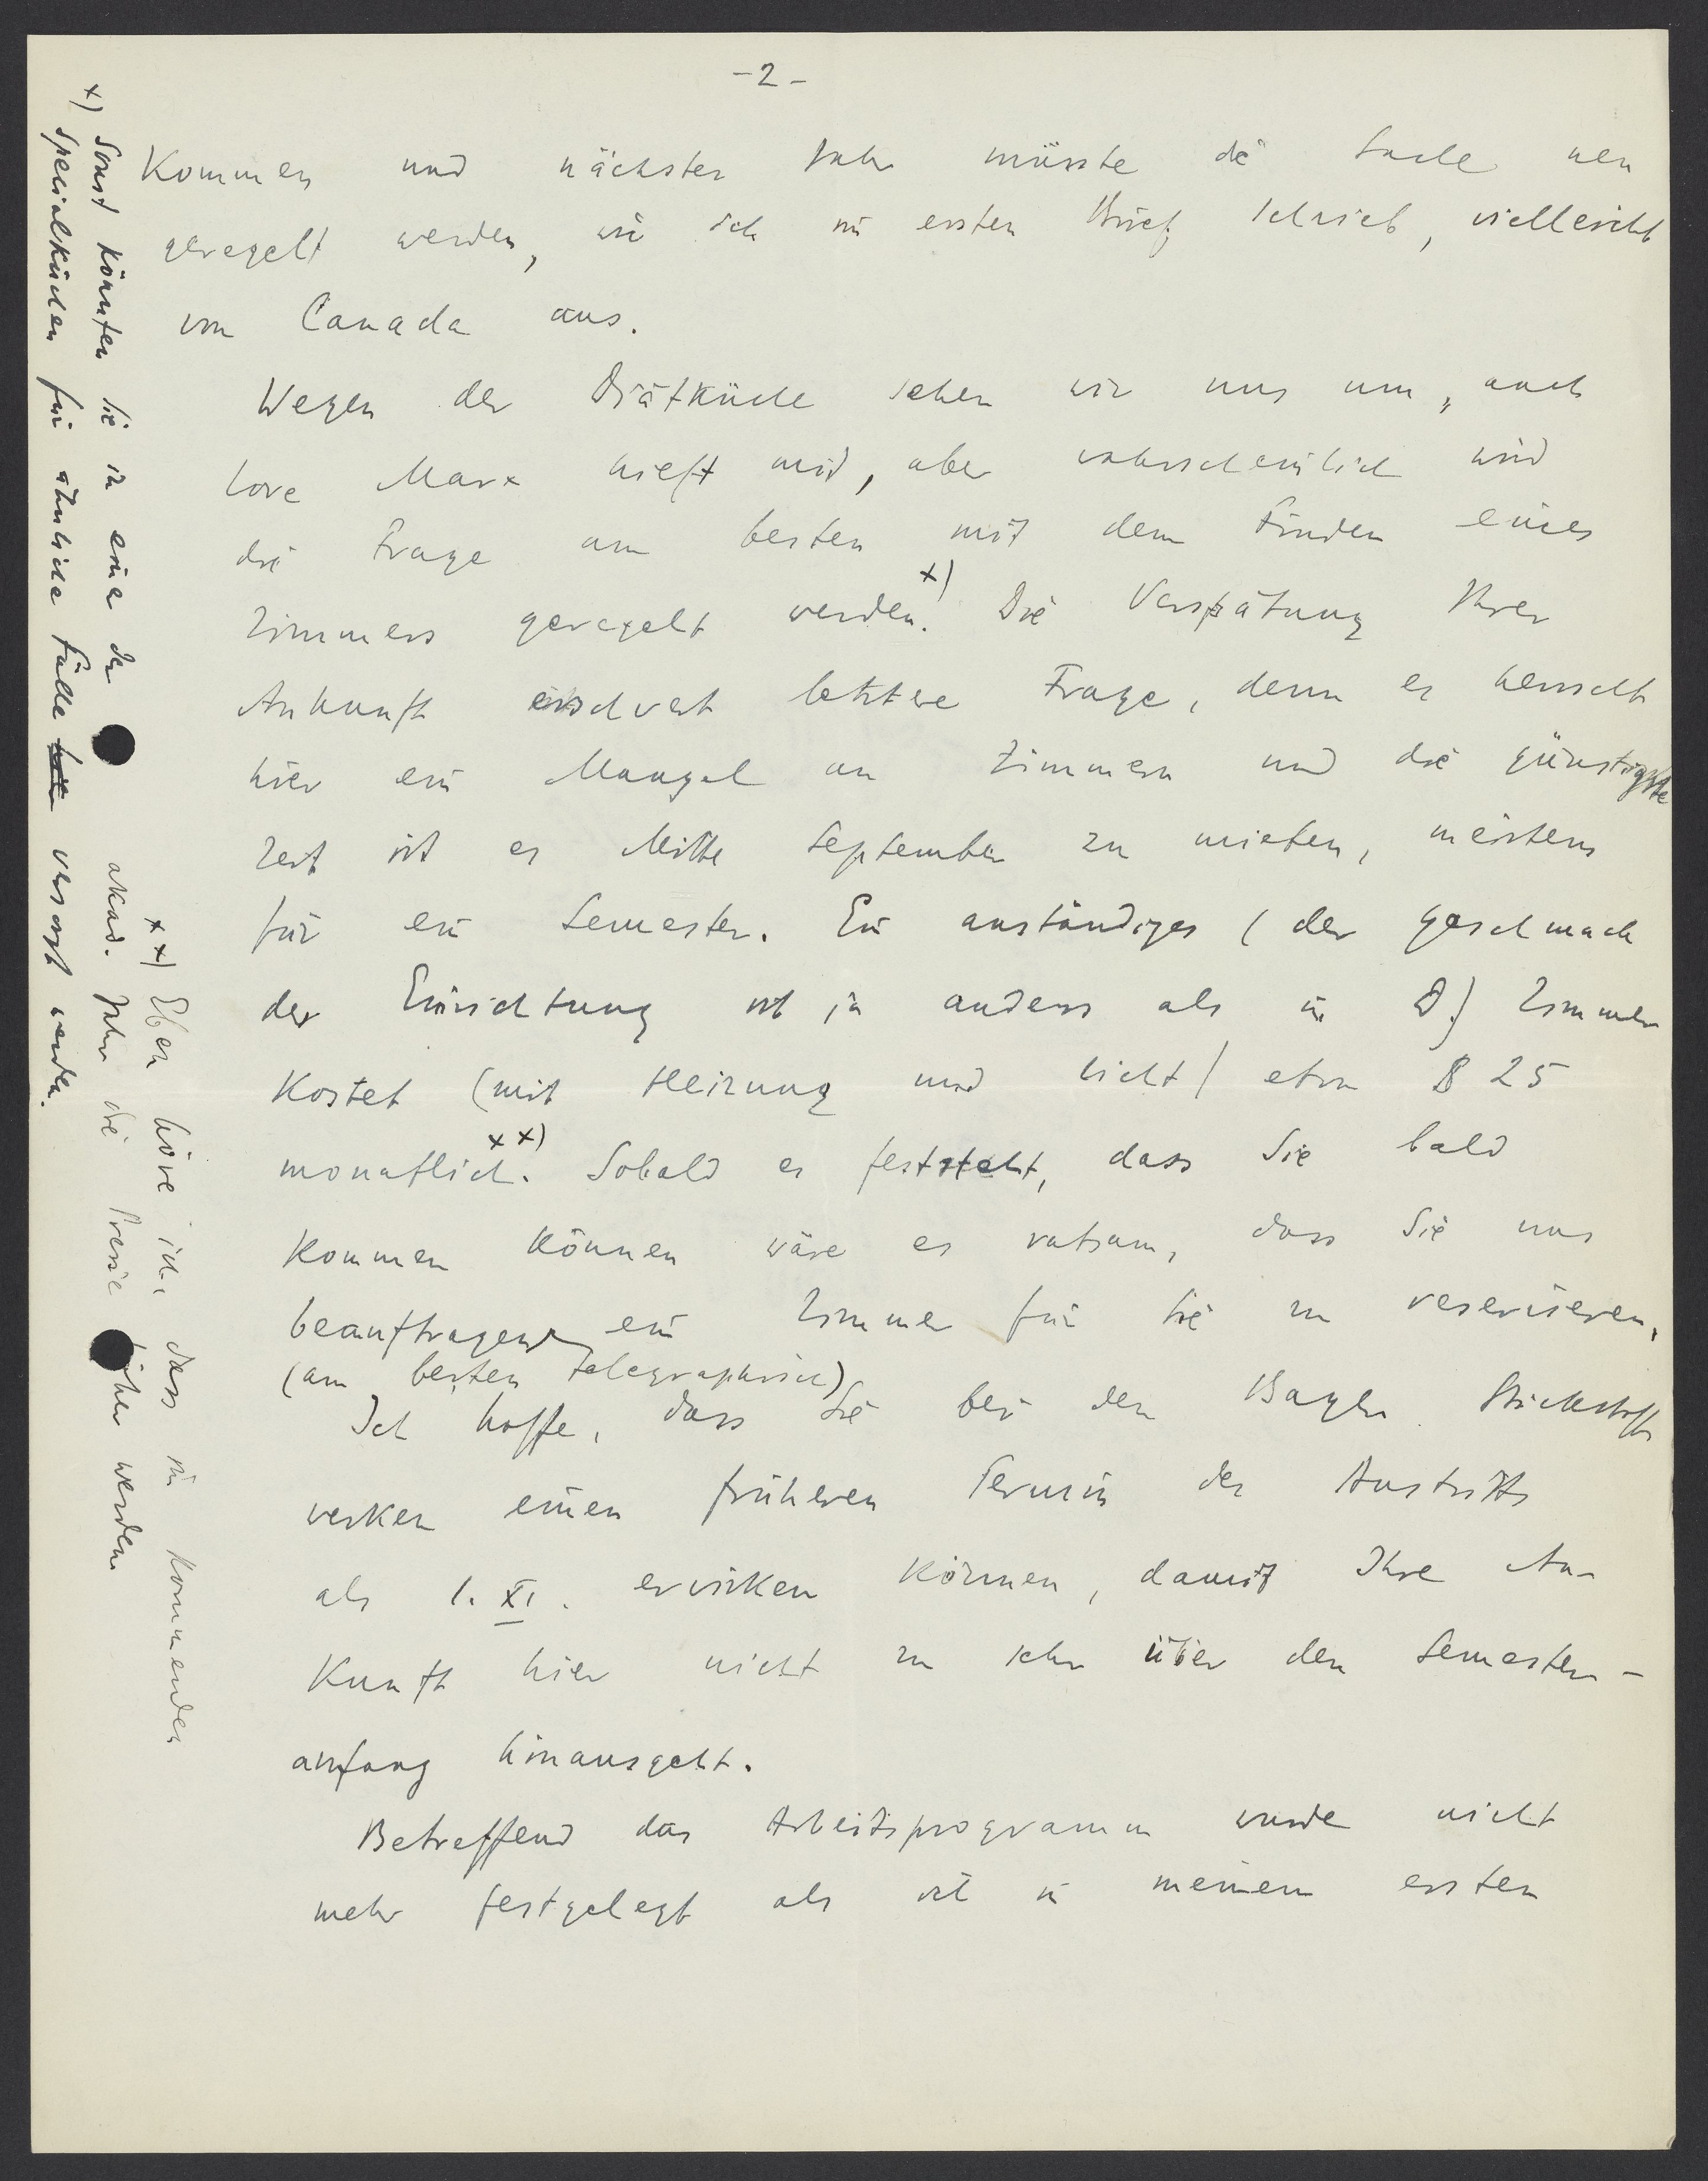 -2-
Kommen und nächster Jahr müsste die Sache neu
geregelt werden, wie ich im ersten Brief schrieb, vielleicht
von Canada aus.
Wegen der Diätküche sehen wir uns um, auch
Lore Marx hielft mit, aber wahrscheinlich wird
die Frage am besten mit dem Finden eines
Zimmers geregelt werden. x) Die Verspätung Ihrer
Ankunft erschwert letztere Frage, denn es herrscht
hier ein Mangel an Zimmern und die günstigste
Zeit ist es Mitte September zu mieten, meistens
für ein Semester. Ein anständiges (der Geschmack
der Einrichtung ist ja anders als in D.) Zimmer
kostet (mit Heizung und Licht) etwa $ 25
monatlich. xx) Sobald es feststeht, dass Sie bald
kommen können wäre es ratsam, dass Sie uns
beauftragen ein Zimmer für Sie zu reservieren,
(am besten telegraphisch)
Ich hoffe, dass Sie bei den Bayer. Stickstoff
werken einen früheren Termin des Austritts
als 1. XI. erwirken können, damit Ihre An-
kunft hier nicht zu sehr über den Semester-
anfang hinausgeht.
Betreffend das Arbeitsprogramm wurde nicht
mehr festgelegt als ich in meinem ersten
x) Sonst könnten Sie in eine der
Specialküchen für ähnliche Fälle versorgt werden.
xx) Eben höre ich, dass im kommenden
akad. Jahr die Preise höher werden